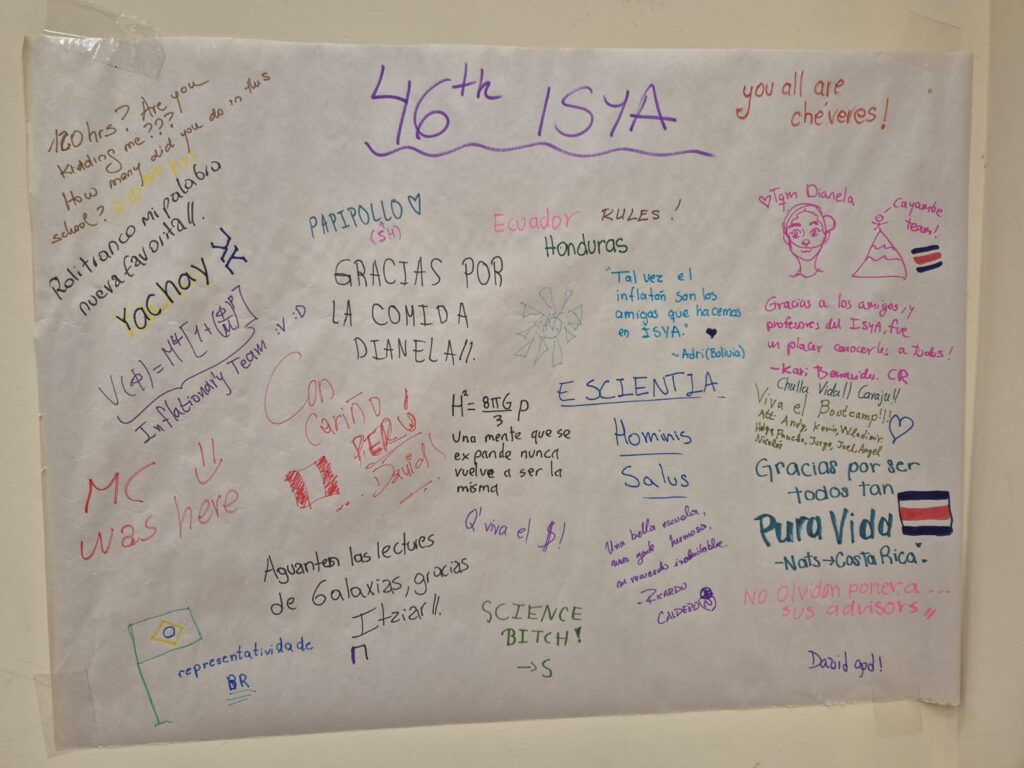 46th ISYA
you all are
chéveres!
120hrs? Are you
kidding me???
How many did you do in this
school?
Rolitranco mi palabra
nueva favorita!!.
Yachay
V(φ)=M⁴[1+(φ/M)ᵖ]
Inflationary Team :V :D
PAPIPOLLO ♡
(SH)
GRACIAS POR
LA COMIDA
DIANELA!!.
Ecuador RULES!
Honduras
"Tal vez el
inflatón son los
amigos que hacemos
en ISYA."
~Adri(Bolivia)
♡Tqm Dianela
Cayambe
team!
Gracias a los amigos, y
profesores del ISYA, fue
un placer conocerles a todos!
-Kari Benavides. CR
Chulla Vida!! Caraju!!
Viva el Bootcamp!!!
Att: Andy, Kevin, Wladimir
Pancho, Jorge, Joel, Angel
Nicolás
Gracias por ser
todos tan
Pura Vida
-Nats→Costa Rica.
NO Olviden poner a ...
sus advisors,,
David god!
E SCIENTIA
Hominis
Salus
H²=8πG/3 ρ
Una mente que se
expande nunca
vuelve a ser la
misma
Con
Cariño
PERÚ!
David
MC
was here
Q' viva el $!
Una bella escuela,
una gente hermosa,
un recuerdo inolvidable.
-RICARDO
CALDERÓN
Aguanten las lectures
de Galaxias, gracias
Itziar!!.
SCIENCE
BITCH!
→S
representatividade
BR